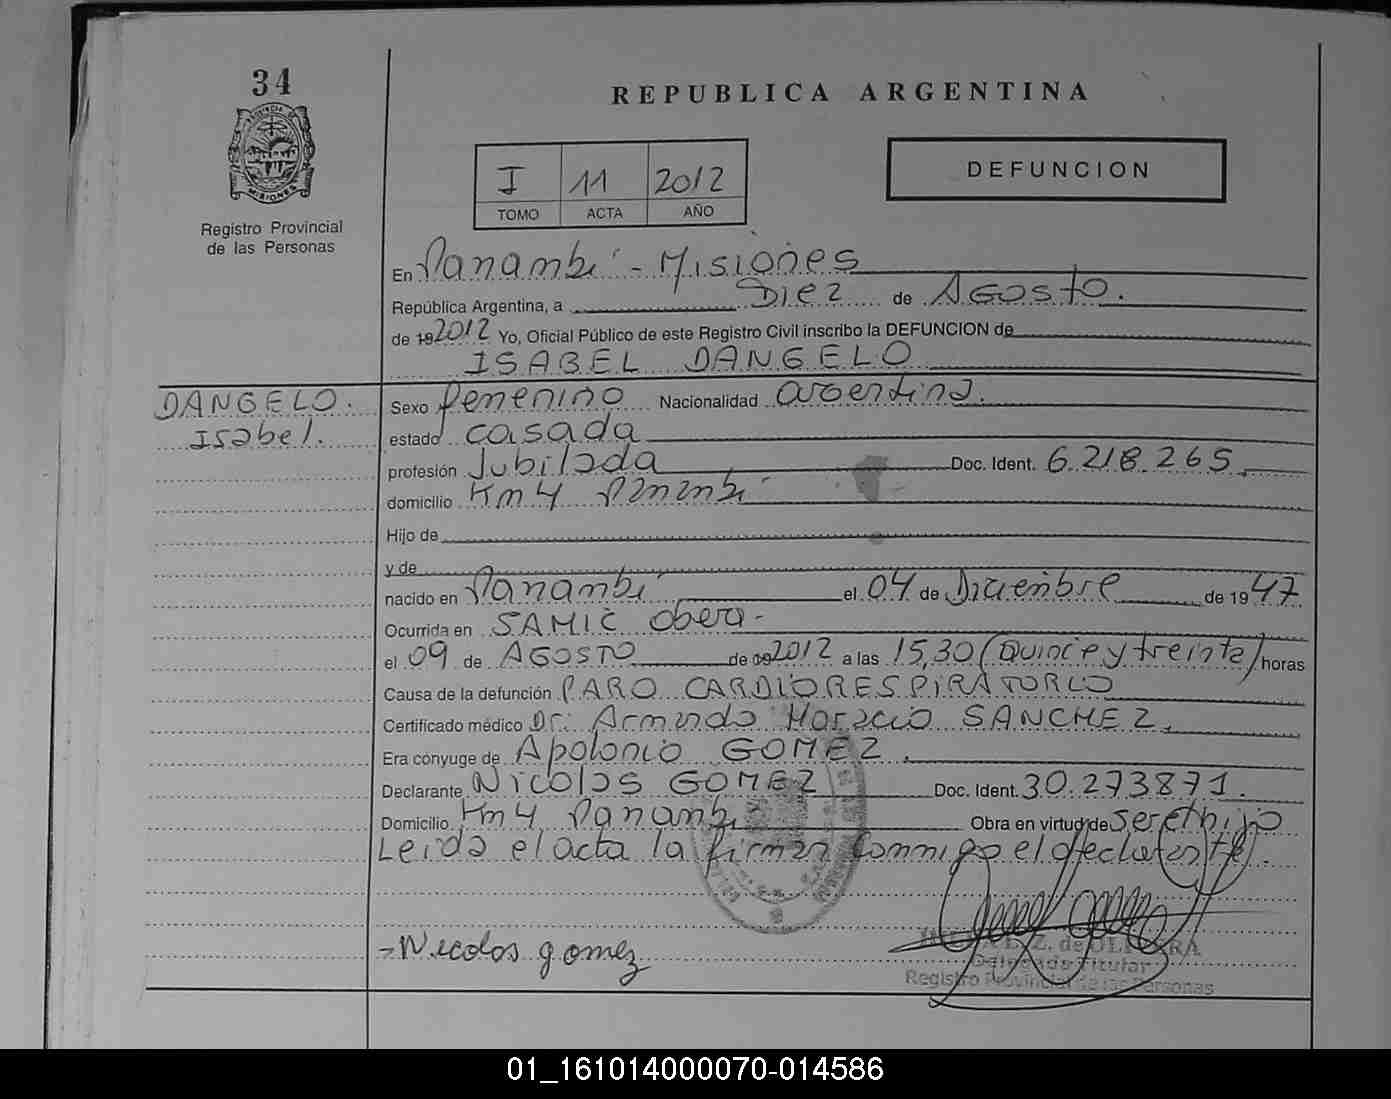 34
REPUBLICA ARGENTINA
PROVINCIA DE
MISIONES
Registro Provincial
de las Personas
I 11 2012
TOMO ACTA AÑO
DEFUNCION
En Panambí - Misiones
República Argentina, a Diez de AGosto.
de 192012 Yo, Oficial Público de este Registro Civil inscribo la DEFUNCION de
ISABEL DANGELO
DANGELO.
Isabel.
Sexo femenino Nacionalidad argentina.
estado casada
profesión Jubilada Doc. Ident. 6.218.265
domicilio Km 4 Panambí
Hijo de
y de
nacido en Panambí el 04 de Diciembre de 1947
Ocurrida en SAMIC Obera-
el 09 de AGOSTO de 2012 a las 15,30 (Quince y treinta) horas
Causa de la defunción PARO CARDIORESPIRATORIO
Certificado médico Dr: Armando Horacio SANCHEZ.
Era cónyuge de Apolonio GOMEZ.
Declarante Nicolas GOMEZ Doc. Ident. 30.273871.
Domicilio Km 4 Panambí Obra en virtud de ser el hijo
Leida el acta la firman conmigo el declarante.
-Nicolos gomez
Z. de OLIVERA
Delegado Titular
Registro Provincial de las Personas
01_161014000070-014586